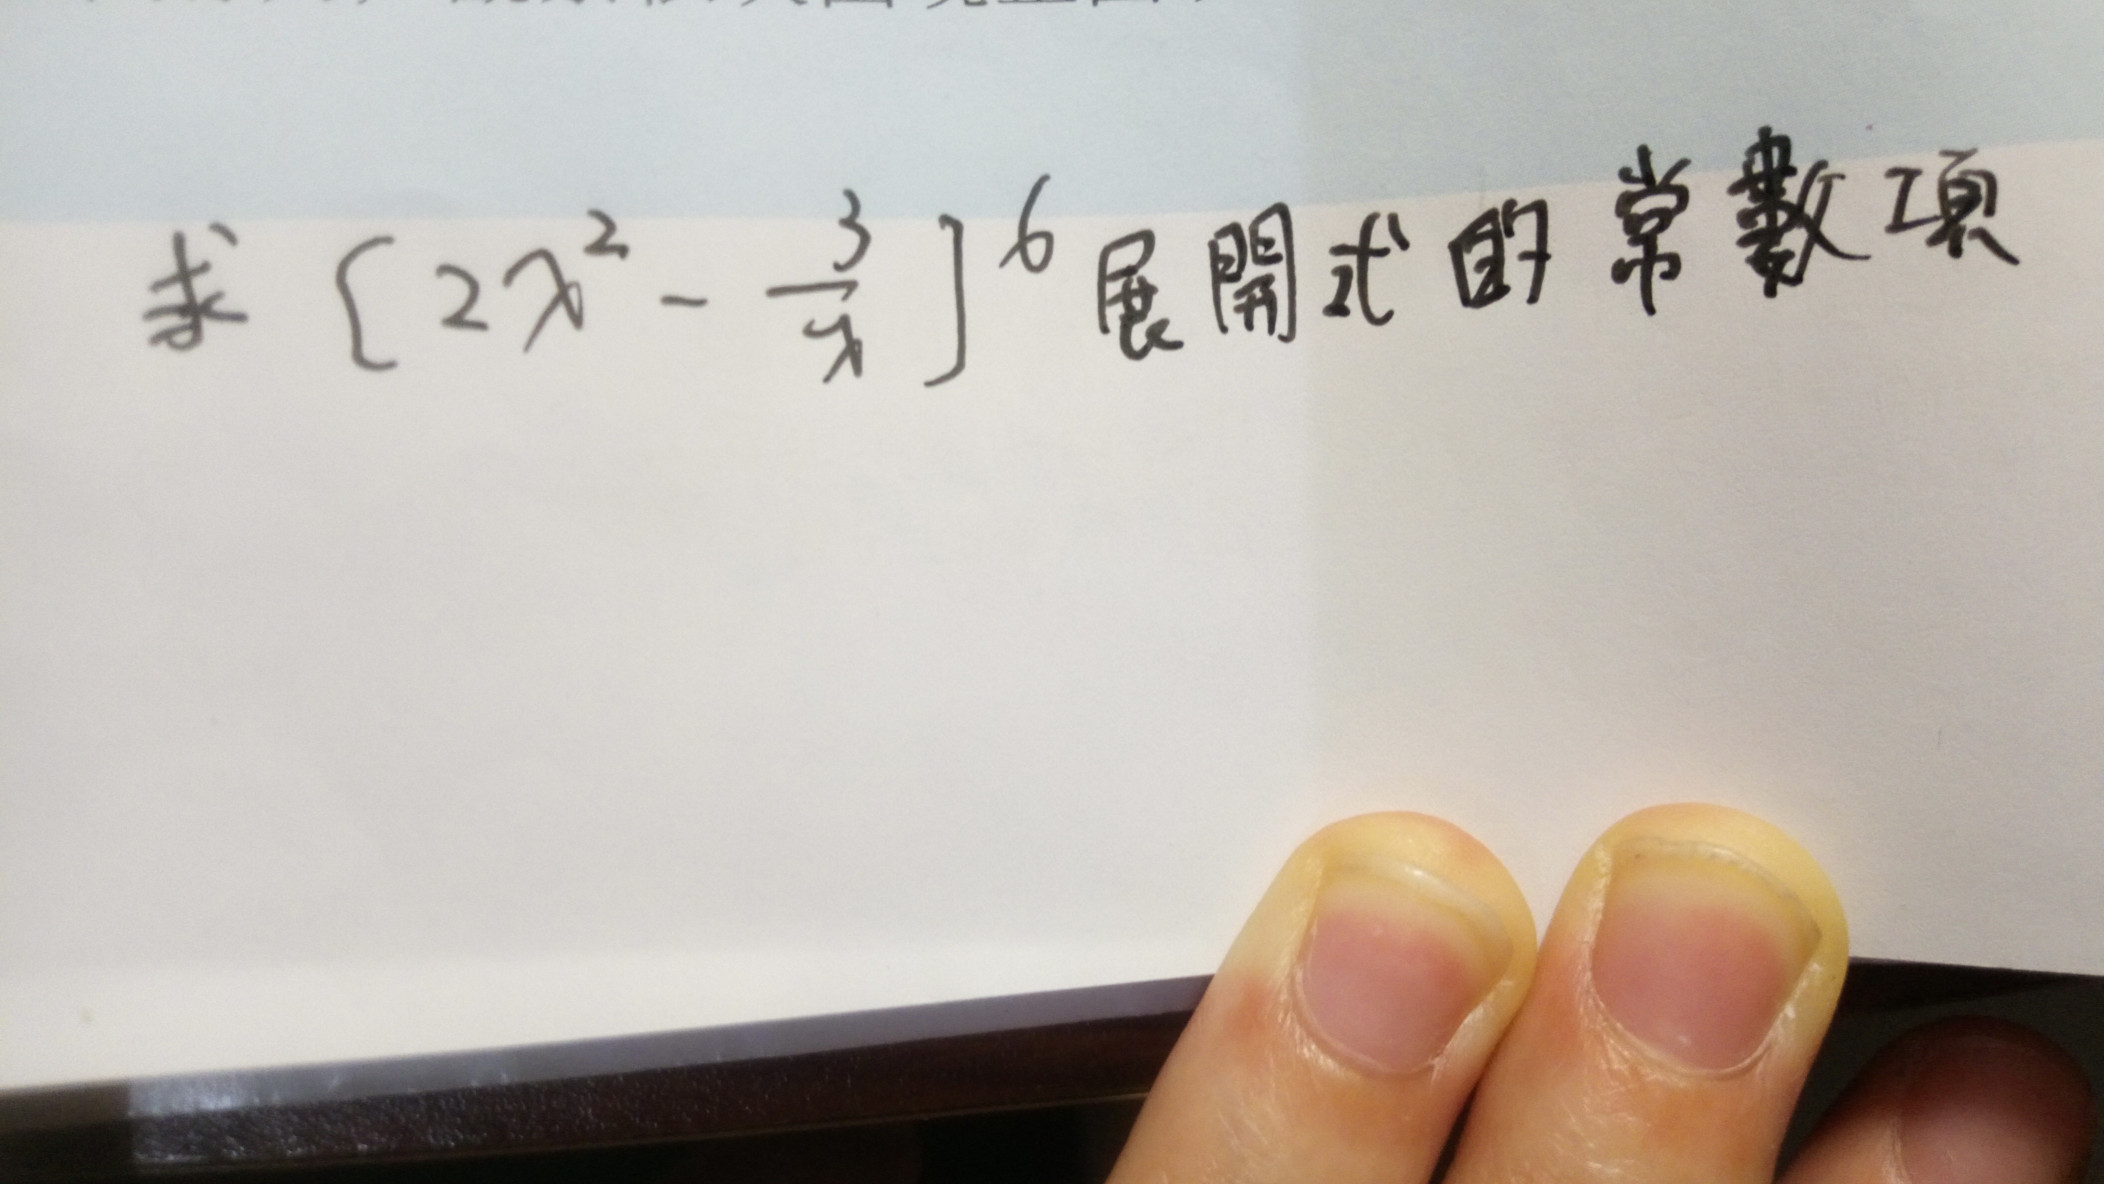 求 [2x² - 3/x]⁶ 展開式的常數項